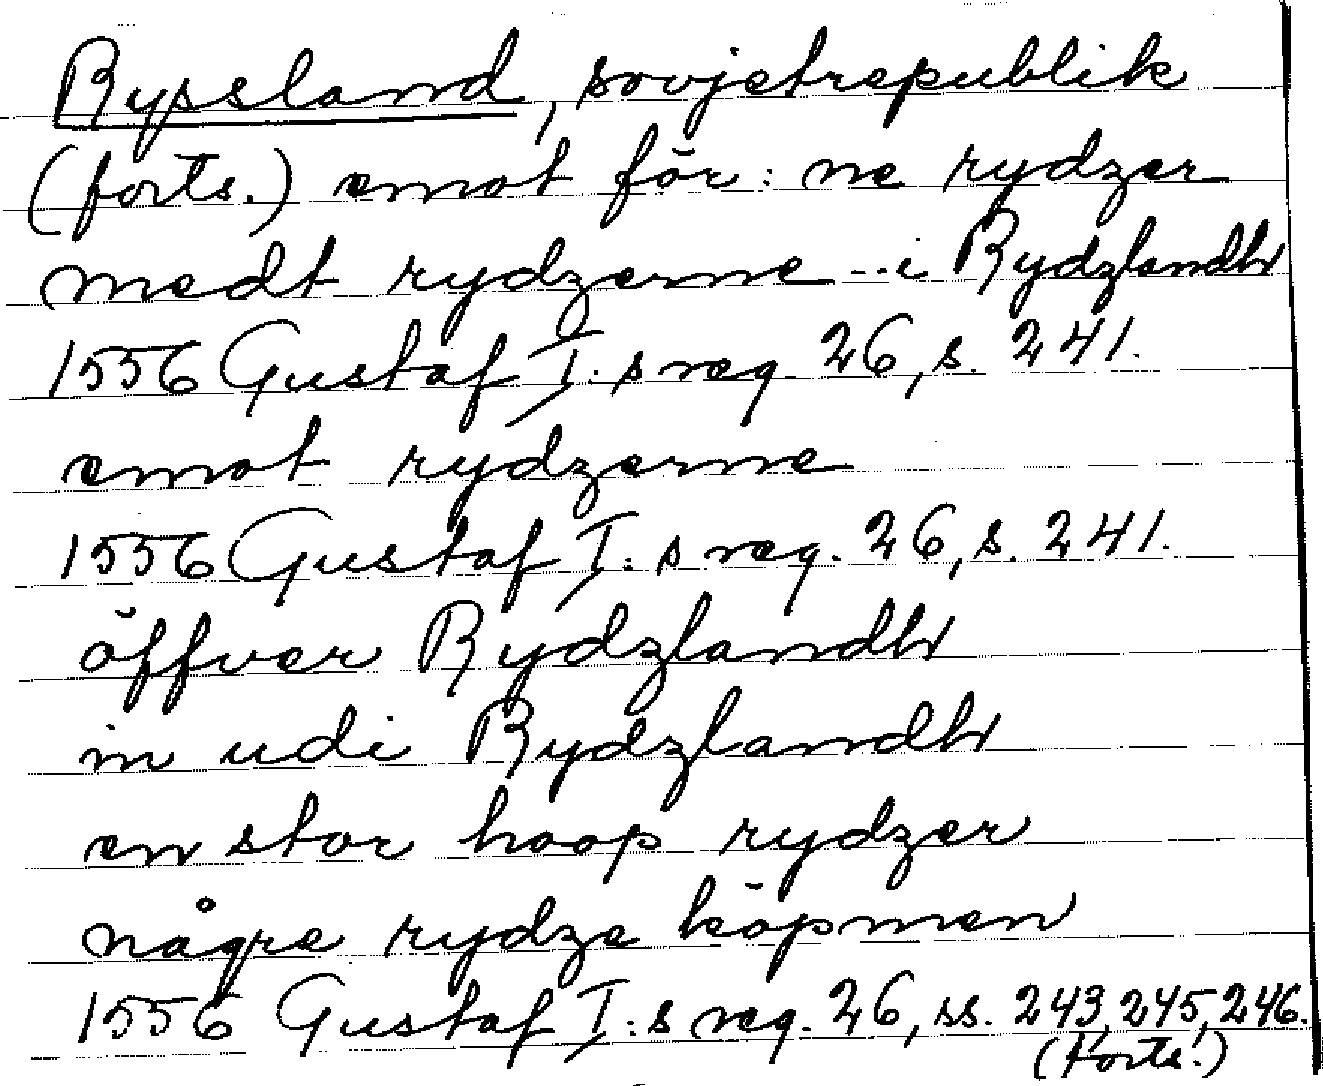 Ryssland, sovjetrepublik
(forts.) emot för: ne rydzer
medt rydzerne ... i Rydzlandh
1556 Gustaf I:s reg. 26, s. 241.
emot rydzerne
1556 Gustaf I:s reg. 26, s. 241.
öffver Rydzlandh
in udi Rydzlandh
en stor hoop rydzer
någre rydze köpmen
1556 Gustaf I:s reg. 26, ss. 243, 245, 246.
(Forts.)